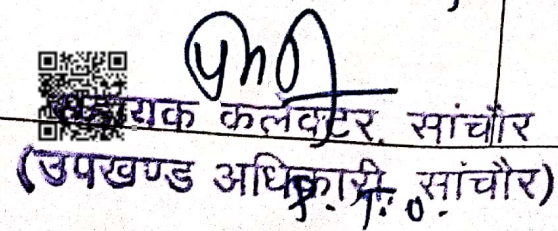 सहायक कलेक्टर, सांचौर
(उपखण्ड अधिकारी, सांचौर)
P.T.O.